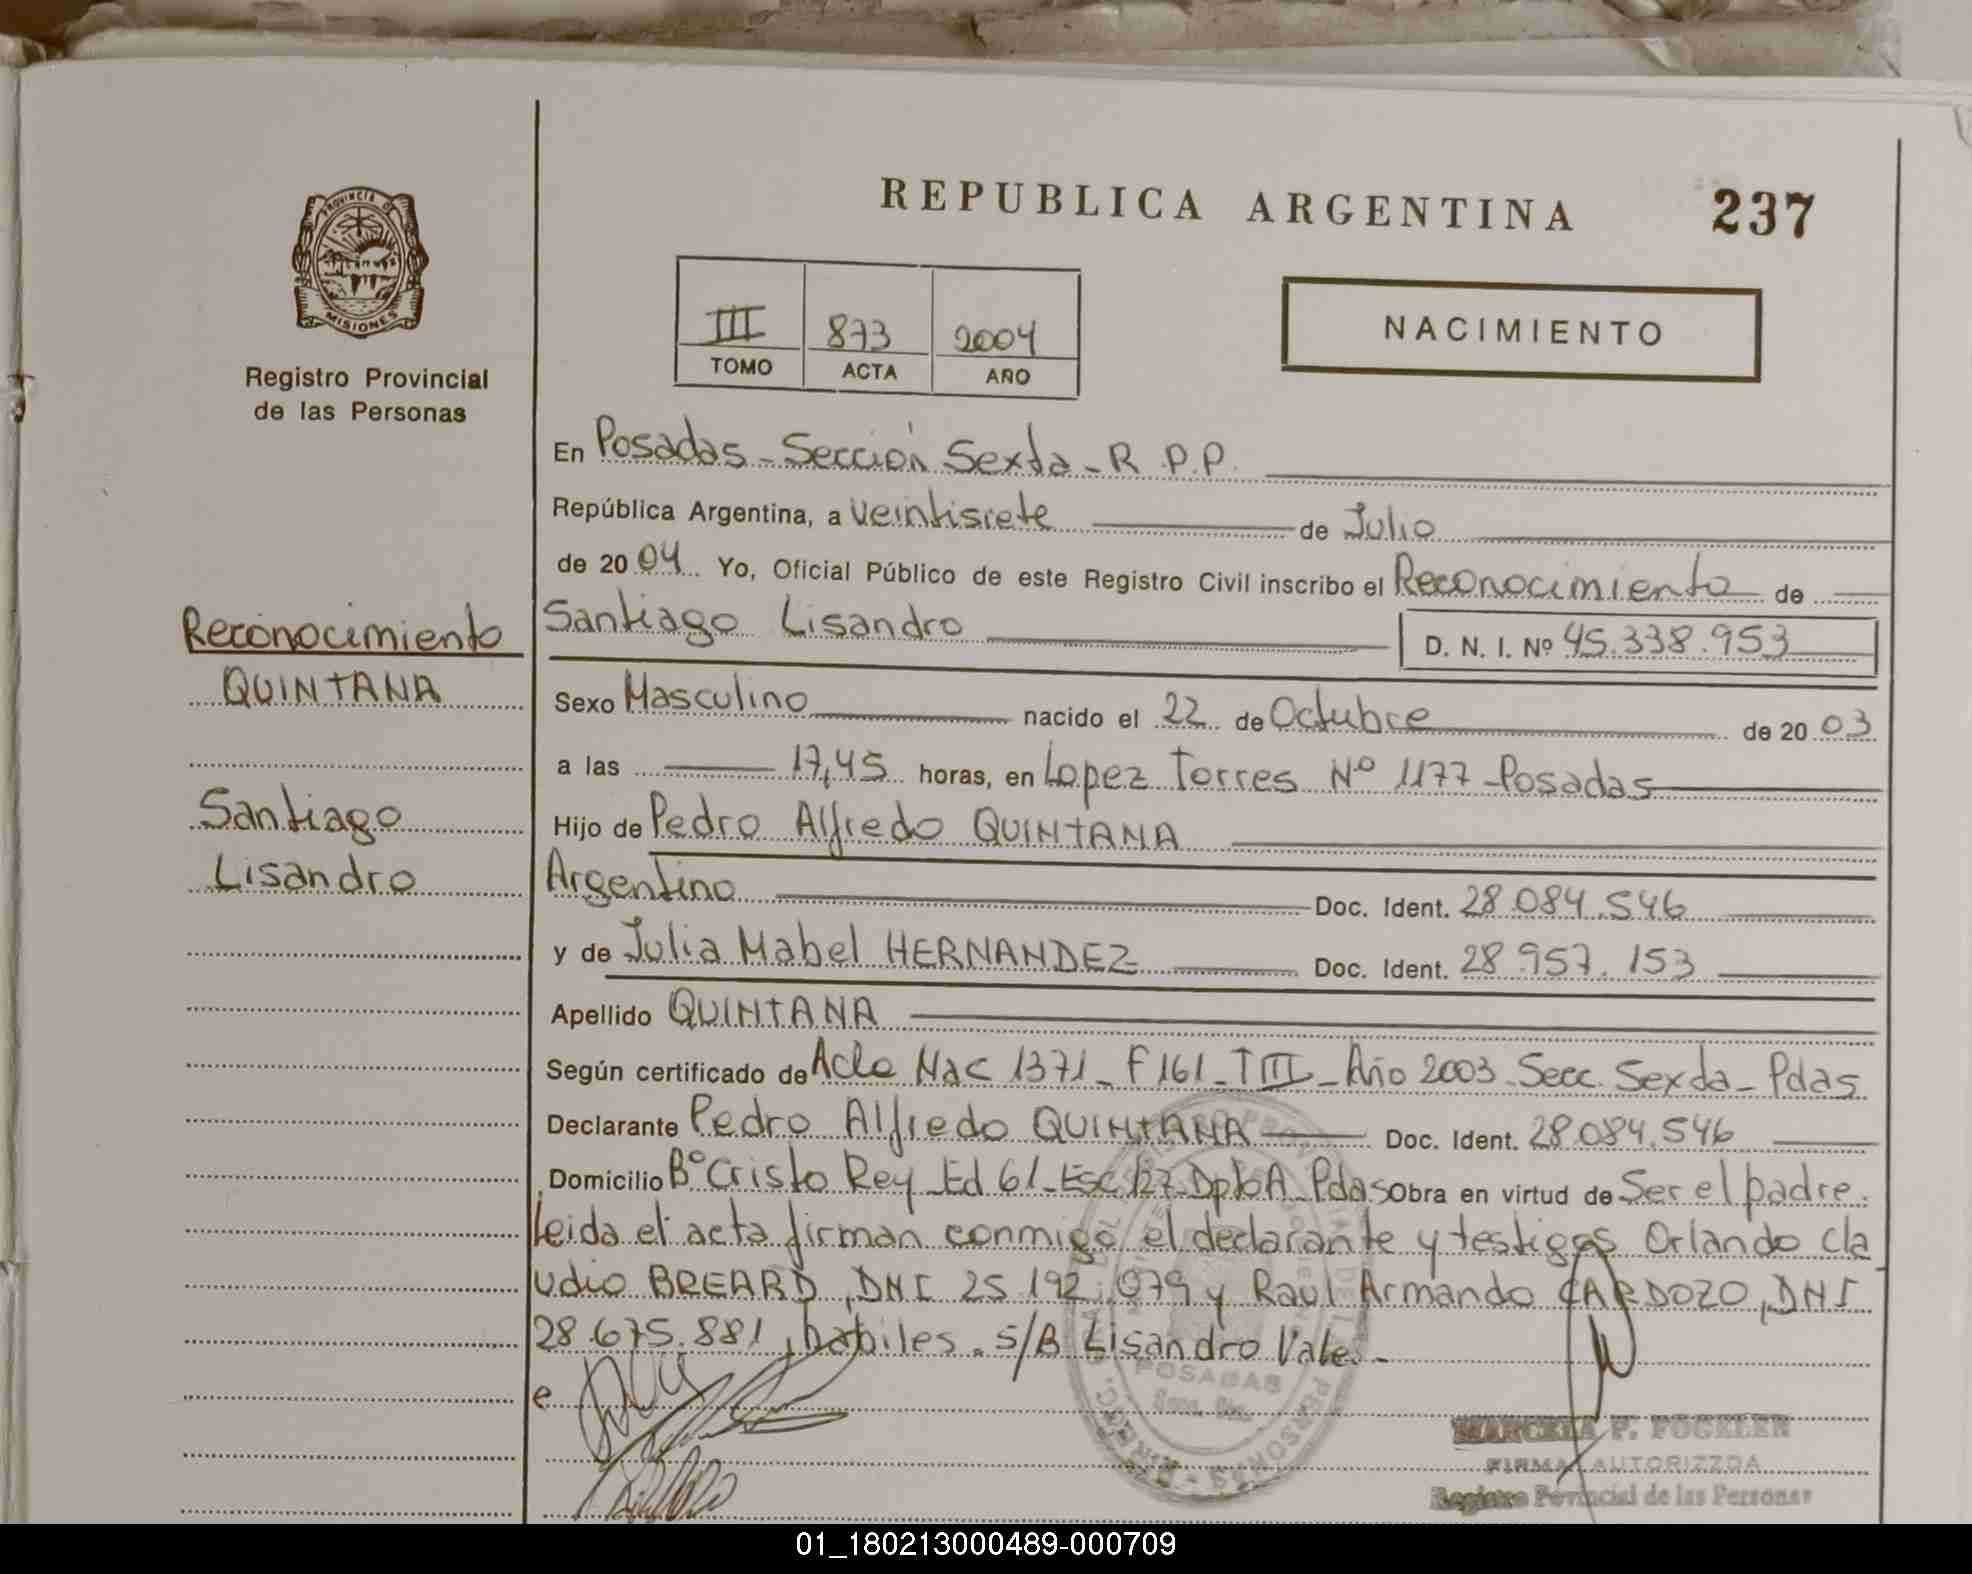 PROVINCIA DE
MISIONES
Registro Provincial
de las Personas
REPUBLICA ARGENTINA
237
III 873 2004
TOMO ACTA AÑO
NACIMIENTO
En Posadas - Sección Sexta - R.P.P.
República Argentina, a veintisiete de Julio
de 2004 Yo, Oficial Público de este Registro Civil inscribo el Reconocimiento de
Santiago Lisandro D. N. I. Nº 45.338.953
Reconocimiento
QUINTANA
Santiago
Lisandro
Sexo Masculino nacido el 22 de Octubre de 2003
a las 17,45 horas, en Lopez Torres Nº 1177 - Posadas
Hijo de Pedro Alfredo QUINTANA
Argentino Doc. Ident. 28.084.546
y de Julia Mabel HERNANDEZ Doc. Ident. 28.957.153
Apellido QUINTANA
Según certificado de Acta Nac 1371 - F 161 - T III - Año 2003 - Secc. Sexta - Pdas
Declarante Pedro Alfredo QUINTANA Doc. Ident. 28.084.546
Domicilio Bº Cristo Rey - Ed 61 - Esc 127 - Dpto A - Pdas Obra en virtud de Ser el padre.
Leida el acta firman conmigo el declarante y testigos Orlando Cla
udio BREARD, DNI 25.192.079 y Raul Armando CARDOZO, DNI
28.675.881, habiles. S/B Lisandro Vale.-
e
POSADAS
MARCELA P. FOGELER
FIRMA AUTORIZZDA
Registro Povincial de las Personas
01_180213000489-000709